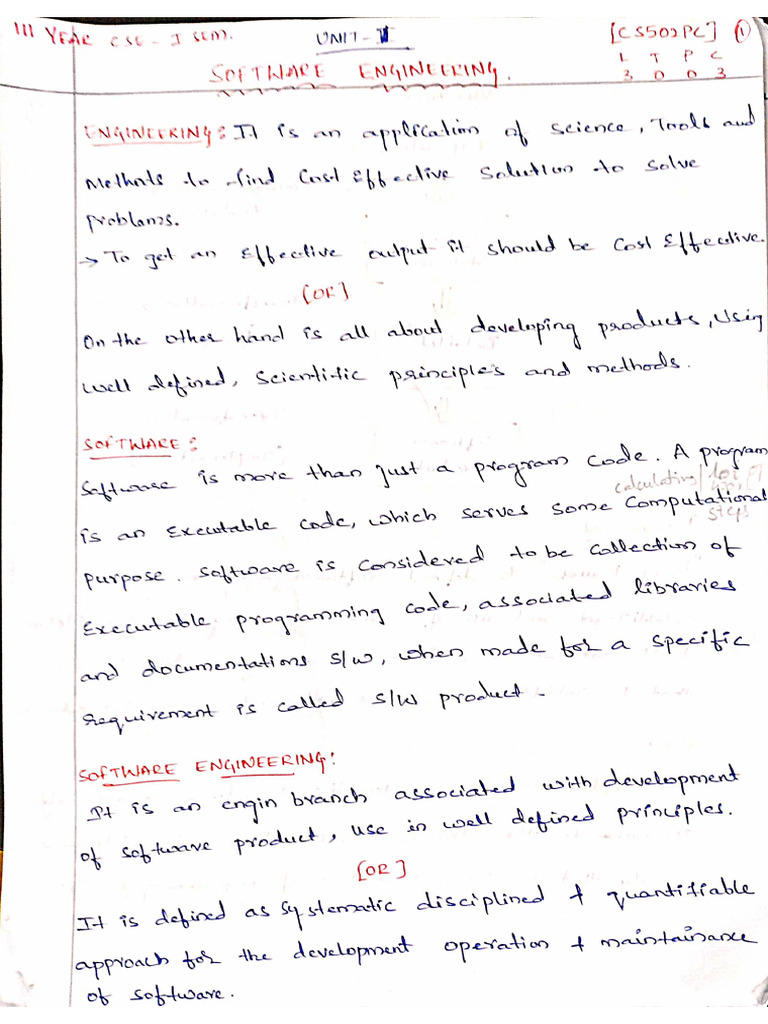 III YEAR CSE - I SEM. UNIT-I [CS502PC] 1
L T P C
3 0 0 3
SOFTWARE ENGINEERING.
ENGINEERING: It is an application of science, Tools and
Methods to find Cost Effective solution to solve
problems.
→ To get an Effective output it should be Cost Effective.
[OR]
On the other hand is all about developing products, using
well defined, scientific principles and methods.
SOFTWARE:
Software is more than just a program code. A program
calculating
is an Executable code, which serves some computational
steps
purpose. Software is considered to be collection of
Executable programming code, associated libraries
and documentations s/w, when made for a specific
requirement is called s/w product.
SOFTWARE ENGINEERING:
It is an engin branch associated with development
of software product, use in well defined principles.
[OR]
It is defined as systematic disciplined + quantifiable
approach for the development operation + maintainance
of software.